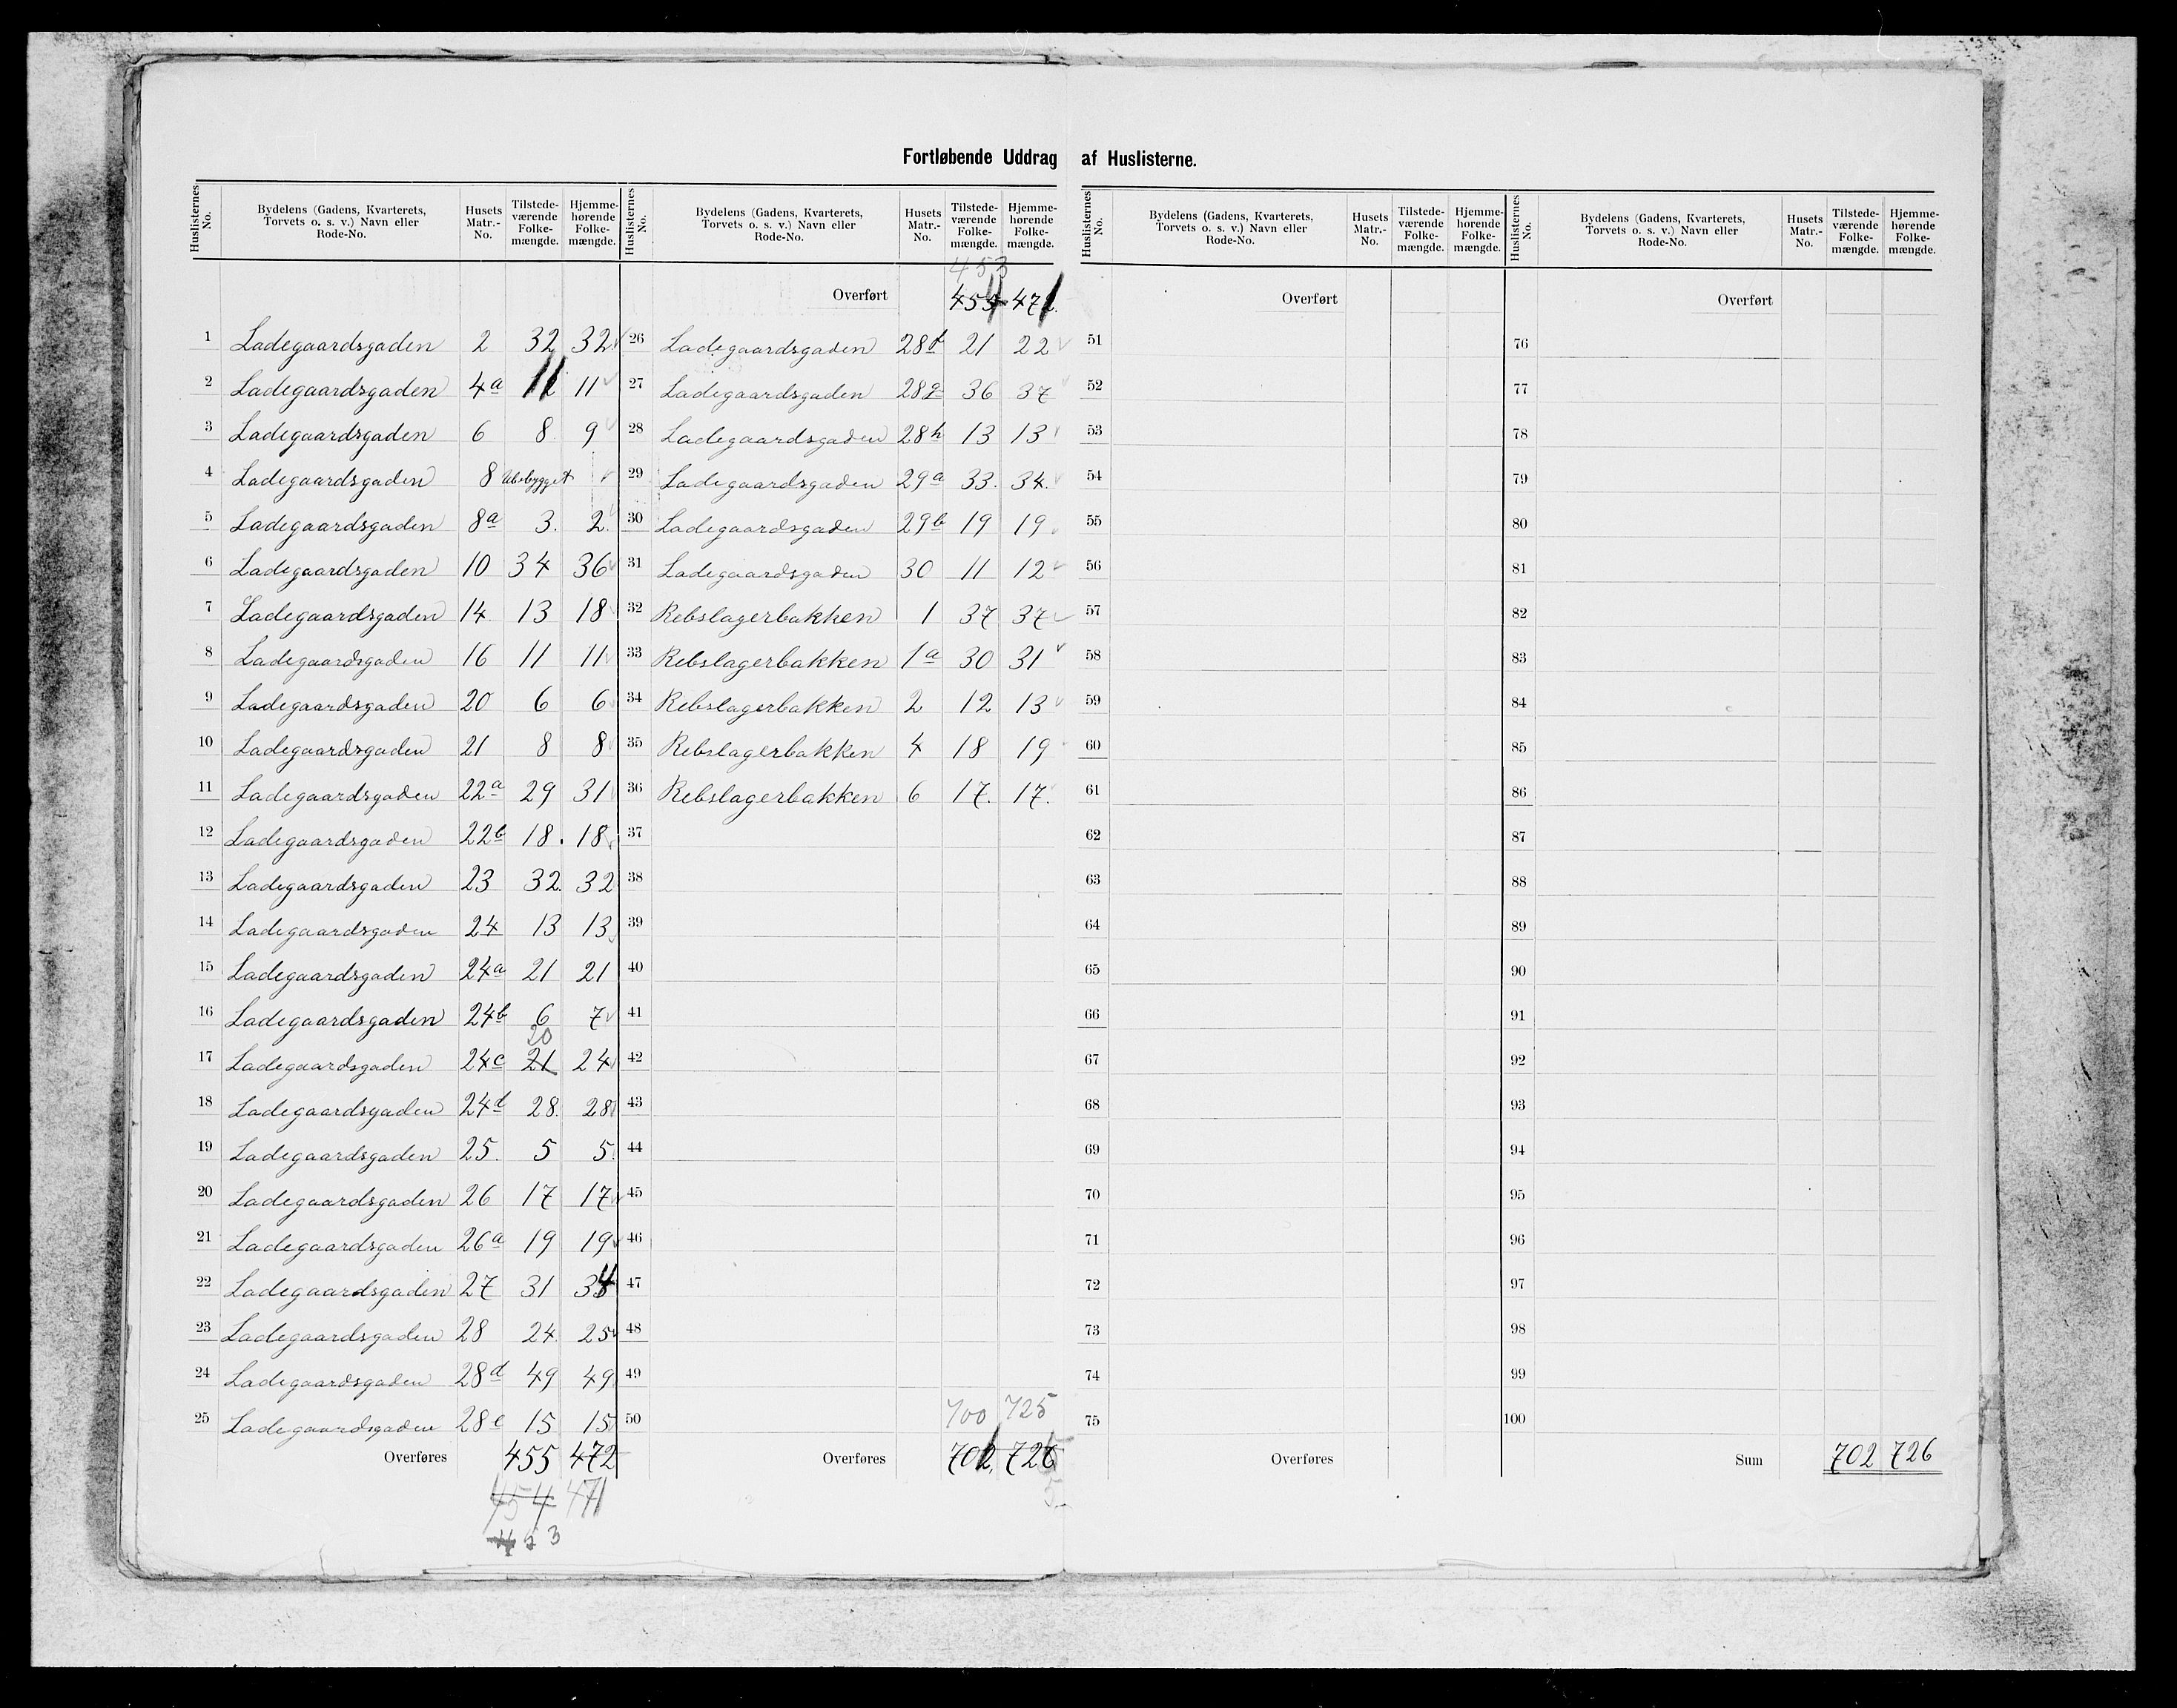 Fortløbende Uddrag af Huslisterne.
Huslisternes No. | Bydelens (Gadens, Kvarterets, Torvets o. s. v.) Navn eller Rode-No. | Husets Matr.-No. | Tilstedeværende Folkemængde. | Hjemmehørende Folkemængde.
1 Ladegaardsgaden 2 32 32
2 Ladegaardsgaden 4a 11 11
3 Ladegaardsgaden 6 8 9
4 Ladegaardsgaden 8 Ubebygget
5 Ladegaardsgaden 8a 3. 2.
6 Ladegaardsgaden 10 34 36
7 Ladegaardsgaden 14 13 18
8 Ladegaardsgaden 16 11 11
9 Ladegaardsgaden 20 6 6
10 Ladegaardsgaden 21 8 8
11 Ladegaardsgaden 22a 29 31
12 Ladegaardsgaden 22b 18. 18
13 Ladegaardsgaden 23 32. 32
14 Ladegaardsgaden 24 13 13
15 Ladegaardsgaden 24a 21 21
16 Ladegaardsgaden 24b 6 7
20
17 Ladegaardsgaden 24c 21 24
18 Ladegaardsgaden 24d 28. 28
19 Ladegaardsgaden 25. 5 5.
20 Ladegaardsgaden 26 17 17
21 Ladegaardsgaden 26a 19 19
22 Ladegaardsgaden 27 31 34
23 Ladegaardsgaden 28 24. 25
24 Ladegaardsgaden 28d 49 49
25 Ladegaardsgaden 28e 15 15
Overføres 455 472
454 471
453
Huslisternes No. | Bydelens (Gadens, Kvarterets, Torvets o. s. v.) Navn eller Rode-No. | Husets Matr.-No. | Tilstedeværende Folkemængde. | Hjemmehørende Folkemængde.
453
Overført 454 471
26 Ladegaardsgaden 28f 21 22
27 Ladegaardsgaden 28g 36 37
28 Ladegaardsgaden 28h 13 13
29 Ladegaardsgaden 29a 33. 34.
30 Ladegaardsgaden 29b 19 19
31 Ladegaardsgaden 30 11 12
32 Rebslagerbakken 1 37 37
33 Rebslagerbakken 1a 30 31
34 Rebslagerbakken 2 12 13
35 Rebslagerbakken 4 18 19
36 Rebslagerbakken 6 17. 17.
37
38
39
40
41
42
43
44
45
46
47
48
49
50
700 725
Overføres 702 726
5
Huslisternes No. | Bydelens (Gadens, Kvarterets, Torvets o. s. v.) Navn eller Rode-No. | Husets Matr.-No. | Tilstedeværende Folkemængde. | Hjemmehørende Folkemængde.
Overført
51
52
53
54
55
56
57
58
59
60
61
62
63
64
65
66
67
68
69
70
71
72
73
74
75
Overføres
Huslisternes No. | Bydelens (Gadens, Kvarterets, Torvets o. s. v.) Navn eller Rode-No. | Husets Matr.-No. | Tilstedeværende Folkemængde. | Hjemmehørende Folkemængde.
Overført
76
77
78
79
80
81
82
83
84
85
86
87
88
89
90
91
92
93
94
95
96
97
98
99
100
Sum 702 726